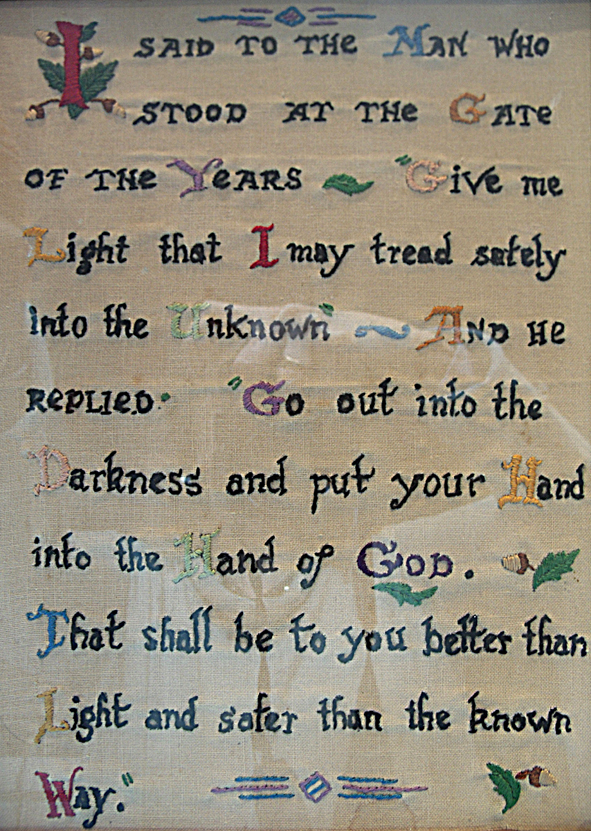 I SAID TO THE MAN WHO
STOOD AT THE GATE
OF THE YEARS "Give me
Light that I may tread safely
into the Unknown" AND HE
REPLIED· "Go out into the
Darkness and put your Hand
into the Hand of GOD.
That shall be to you better than
Light and safer than the known
Way."